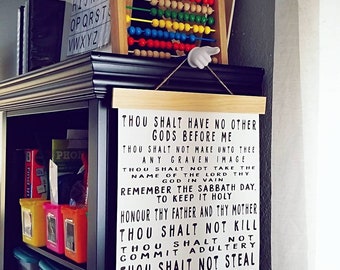 NOPQRS
PHO
THOU SHALT HAVE NO OTHER
GODS BEFORE ME
THOU SHALT NOT MAKE UNTO THEE
ANY GRAVEN IMAGE
THOU SHALT NOT TAKE THE
NAME OF THE LORD THY
GOD IN VAIN
REMEMBER THE SABBATH DAY,
TO KEEP IT HOLY
HONOUR THY FATHER AND THY MOTHER
THOU SHALT NOT KILL
THOU SHALT NOT
COMMIT ADULTERY
THOU SHALT NOT STEAL